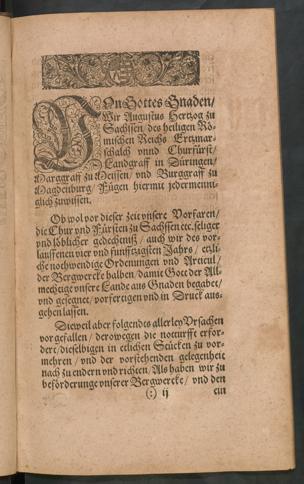 VOn Gottes Gnaden/
Wir Augustus Hertzog zu
Sachssen, des heiligen Rö-
mischen Reichs Ertzmar-
schalch vnnd Churfürst/
Landgraff in Düringen/
Marggraff zu Meissen/ vnd Burggraff zu
Magdenburg/ Fügen hiermit jedermenni-
glich zuwissen.
Ob wol vor dieser zeit vnsere Vorfaren/
die Chur vnd Fürsten zu Sachssen etc. seliger
vnd löblicher gedechtniß/ auch wir des vor-
lauffenen vier vnd funfftzigsten Jahrs/ etzli-
che notwendige Ordenungen vnd Articul/
der Bergwercke halben/ damit Gott der All-
mechtige vnsere Lande aus Gnaden begabet/
vnd gesegnet/ vorfertigen vnd in Druck aus-
gehen lassen.
Dieweil aber folgendes allerley Vrsachen
vorgefallen/ derowegen die notturfft erfor-
dert/ dieselbigen in etlichen Stücken zu vor-
mehren/ vnd der vorstehenden gelegenheit
nach zu endern vnd richten/ Als haben wir zu
beförderunge vnserer Bergwercke/ vnd den
(:) ij ein